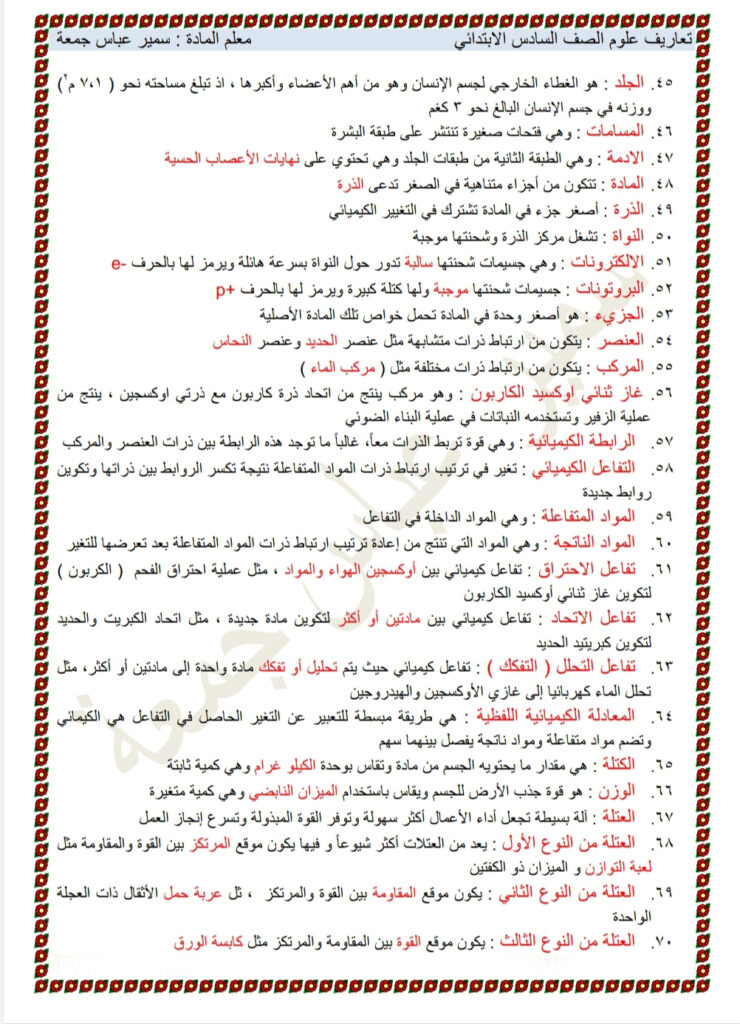 تعاريف علوم الصف السادس الابتدائي معلم المادة : سمير عباس جمعة
٤٥. الجلد : هو الغطاء الخارجي لجسم الإنسان وهو من أهم الأعضاء وأكبرها ، اذ تبلغ مساحته نحو ( ٧،١ م٢)
ووزنه في جسم الإنسان البالغ نحو ٣ كغم
٤٦. المسامات : وهي فتحات صغيرة تنتشر على طبقة البشرة
٤٧. الادمة : وهي الطبقة الثانية من طبقات الجلد وهي تحتوي على نهايات الأعصاب الحسية
٤٨. المادة : تتكون من أجزاء متناهية في الصغر تدعى الذرة
٤٩. الذرة : أصغر جزء في المادة تشترك في التغيير الكيميائي
٥٠. النواة : تشغل مركز الذرة وشحنتها موجبة
٥١. الالكترونات : وهي جسيمات شحنتها سالبة تدور حول النواة بسرعة هائلة ويرمز لها بالحرف e-
٥٢. البروتونات : جسيمات شحنتها موجبة ولها كتلة كبيرة ويرمز لها بالحرف p+
٥٣. الجزيء : هو أصغر وحدة في المادة تحمل خواص تلك المادة الأصلية
٥٤. العنصر : يتكون من ارتباط ذرات متشابهة مثل عنصر الحديد وعنصر النحاس
٥٥. المركب : يتكون من ارتباط ذرات مختلفة مثل ( مركب الماء )
٥٦. غاز ثنائي اوكسيد الكاربون : وهو مركب ينتج من اتحاد ذرة كاربون مع ذرتي اوكسجين ، ينتج من
عملية الزفير وتستخدمه النباتات في عملية البناء الضوئي
٥٧. الرابطة الكيميائية : وهي قوة تربط الذرات معاً، غالباً ما توجد هذه الرابطة بين ذرات العنصر والمركب
٥٨. التفاعل الكيميائي : تغير في ترتيب ارتباط ذرات المواد المتفاعلة نتيجة تكسر الروابط بين ذراتها وتكوين
روابط جديدة
٥٩. المواد المتفاعلة : وهي المواد الداخلة في التفاعل
٦٠. المواد الناتجة : وهي المواد التي تنتج من إعادة ترتيب ارتباط ذرات المواد المتفاعلة بعد تعرضها للتغير
٦١. تفاعل الاحتراق : تفاعل كيميائي بين أوكسجين الهواء والمواد ، مثل عملية احتراق الفحم ( الكربون )
لتكوين غاز ثنائي أوكسيد الكاربون
٦٢. تفاعل الاتحاد : تفاعل كيميائي بين مادتين أو أكثر لتكوين مادة جديدة ، مثل اتحاد الكبريت والحديد
لتكوين كبريتيد الحديد
٦٣. تفاعل التحلل ( التفكك ) : تفاعل كيميائي حيث يتم تحليل أو تفكك مادة واحدة إلى مادتين أو أكثر، مثل
تحلل الماء كهربائيا إلى غازي الأوكسجين والهيدروجين
٦٤. المعادلة الكيميائية اللفظية : هي طريقة مبسطة للتعبير عن التغير الحاصل في التفاعل هي الكيمائي
وتضم مواد متفاعلة ومواد ناتجة يفصل بينهما سهم
٦٥. الكتلة : هي مقدار ما يحتويه الجسم من مادة وتقاس بوحدة الكيلو غرام وهي كمية ثابتة
٦٦. الوزن : هو قوة جذب الأرض للجسم ويقاس باستخدام الميزان النابضي وهي كمية متغيرة
٦٧. العتلة : آلة بسيطة تجعل أداء الأعمال أكثر سهولة وتوفر القوة المبذولة وتسرع إنجاز العمل
٦٨. العتلة من النوع الأول : يعد من العتلات أكثر شيوعاً و فيها يكون موقع المرتكز بين القوة والمقاومة مثل
لعبة التوازن و الميزان ذو الكفتين
٦٩. العتلة من النوع الثاني : يكون موقع المقاومة بين القوة والمرتكز ، ثل عربة حمل الأثقال ذات العجلة
الواحدة
٧٠. العتلة من النوع الثالث : يكون موقع القوة بين المقاومة والمرتكز مثل كابسة الورق
سمير عباس جمعة